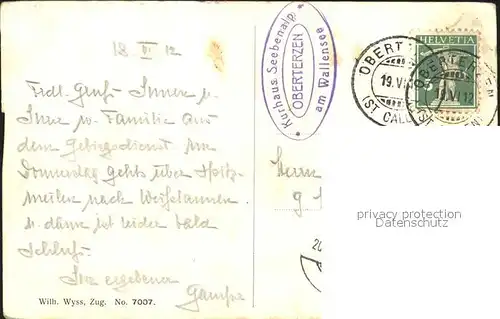 18 VI 12
HELVETIA
Kurhaus Seebenalp
OBERTERZEN
am Wallensee
OBERTERZEN
19.VI.12
(ST GALLEN)
Frdl. Gruss Ihnen u.
Ihrer w. Familie aus
dem Gebirgsdienst
Donnerstag gehts über Spitz-
meilen nach Weisstannen
u. dann ist leider bald
Schluss.
Ihr ergebener
Herrn
privacy protection
Datenschutz
Wilh. Wyss, Zug. No. 7007.